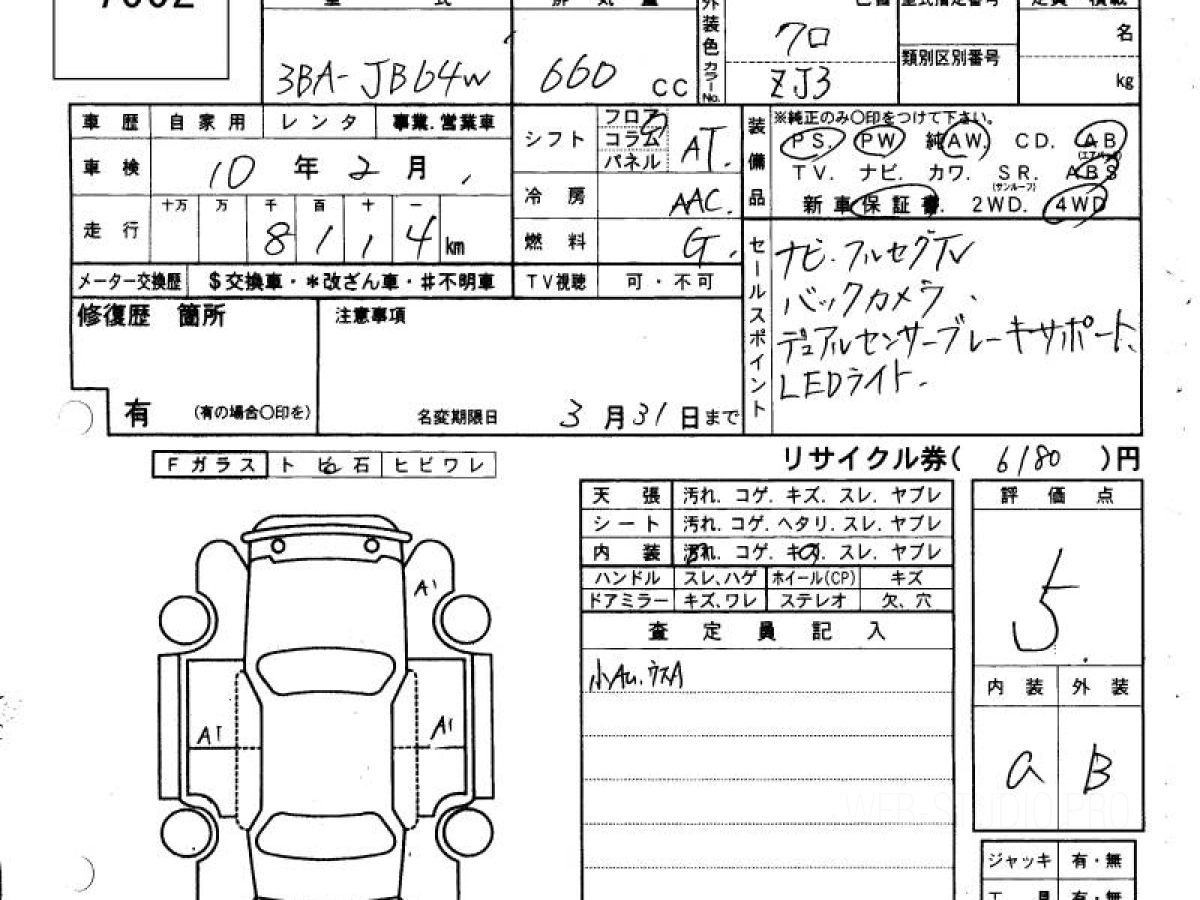 7002
型 式 排 気 量 外装色 型式指定番号 定員 積載
カラーNo.
クロ 名
3BA-JB64W 660 CC ZJ3 類別区別番号 kg
車 歴 自 家 用 レ ン タ 事業.営業車
シフト フロア コラム パネル AT.
装備品 ※純正のみ〇印をつけて下さい。
PS. PW 純AW. CD. AB (エアバック)
車 検 10 年 2 月
TV. ナビ. カワ. SR. (サンルーフ) ABS
冷 房 AAC.
新車保証書. 2WD. 4WD
走 行 十万 万 千 百 十 一
8 1 1 4 km
燃 料 G.
メーター交換歴 $交換車・*改ざん車・#不明車 TV視聴 可 ・ 不可
セールスポイント
ナビ・フルセグTV
バックカメラ、
デュアルセンサーブレーキサポート、
LEDライト.
修復歴 箇所 注意事項
有 (有の場合〇印を) 名変期限日 3 月 31 日まで
リサイクル券( 6180 )円
Fガラス トビ石 ヒビワレ
天 張 汚れ. コゲ. キズ. スレ. ヤブレ
シート 汚れ. コゲ. ヘタリ. スレ. ヤブレ
内 装 汚れ. コゲ. キズ. スレ. ヤブレ
ハンドル スレ、ハゲ ホイール(CP) キズ
ドアミラー キズ、ワレ ステレオ 欠、穴
評 価 点
5
査 定 員 記 入
小AU.ウスA
内 装 外 装
a B
A1
A1
A1
WEB-STUDIO.PRO
ジャッキ 有・無
工 具 有・無